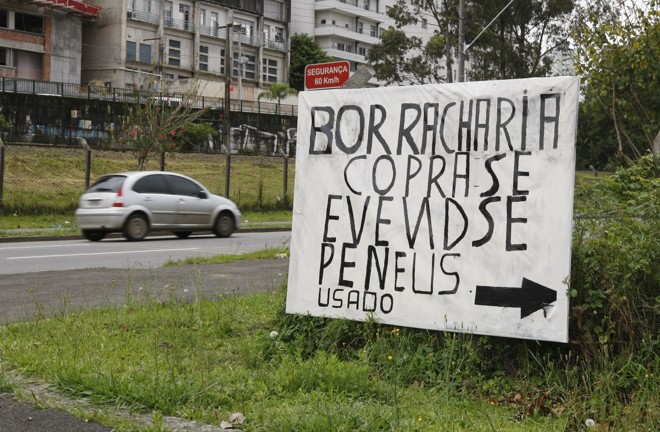 SEGURANÇA
60 Km/h
BORRACHARIA
COPRA-SE
EVENDSE
PENEUS
USADO